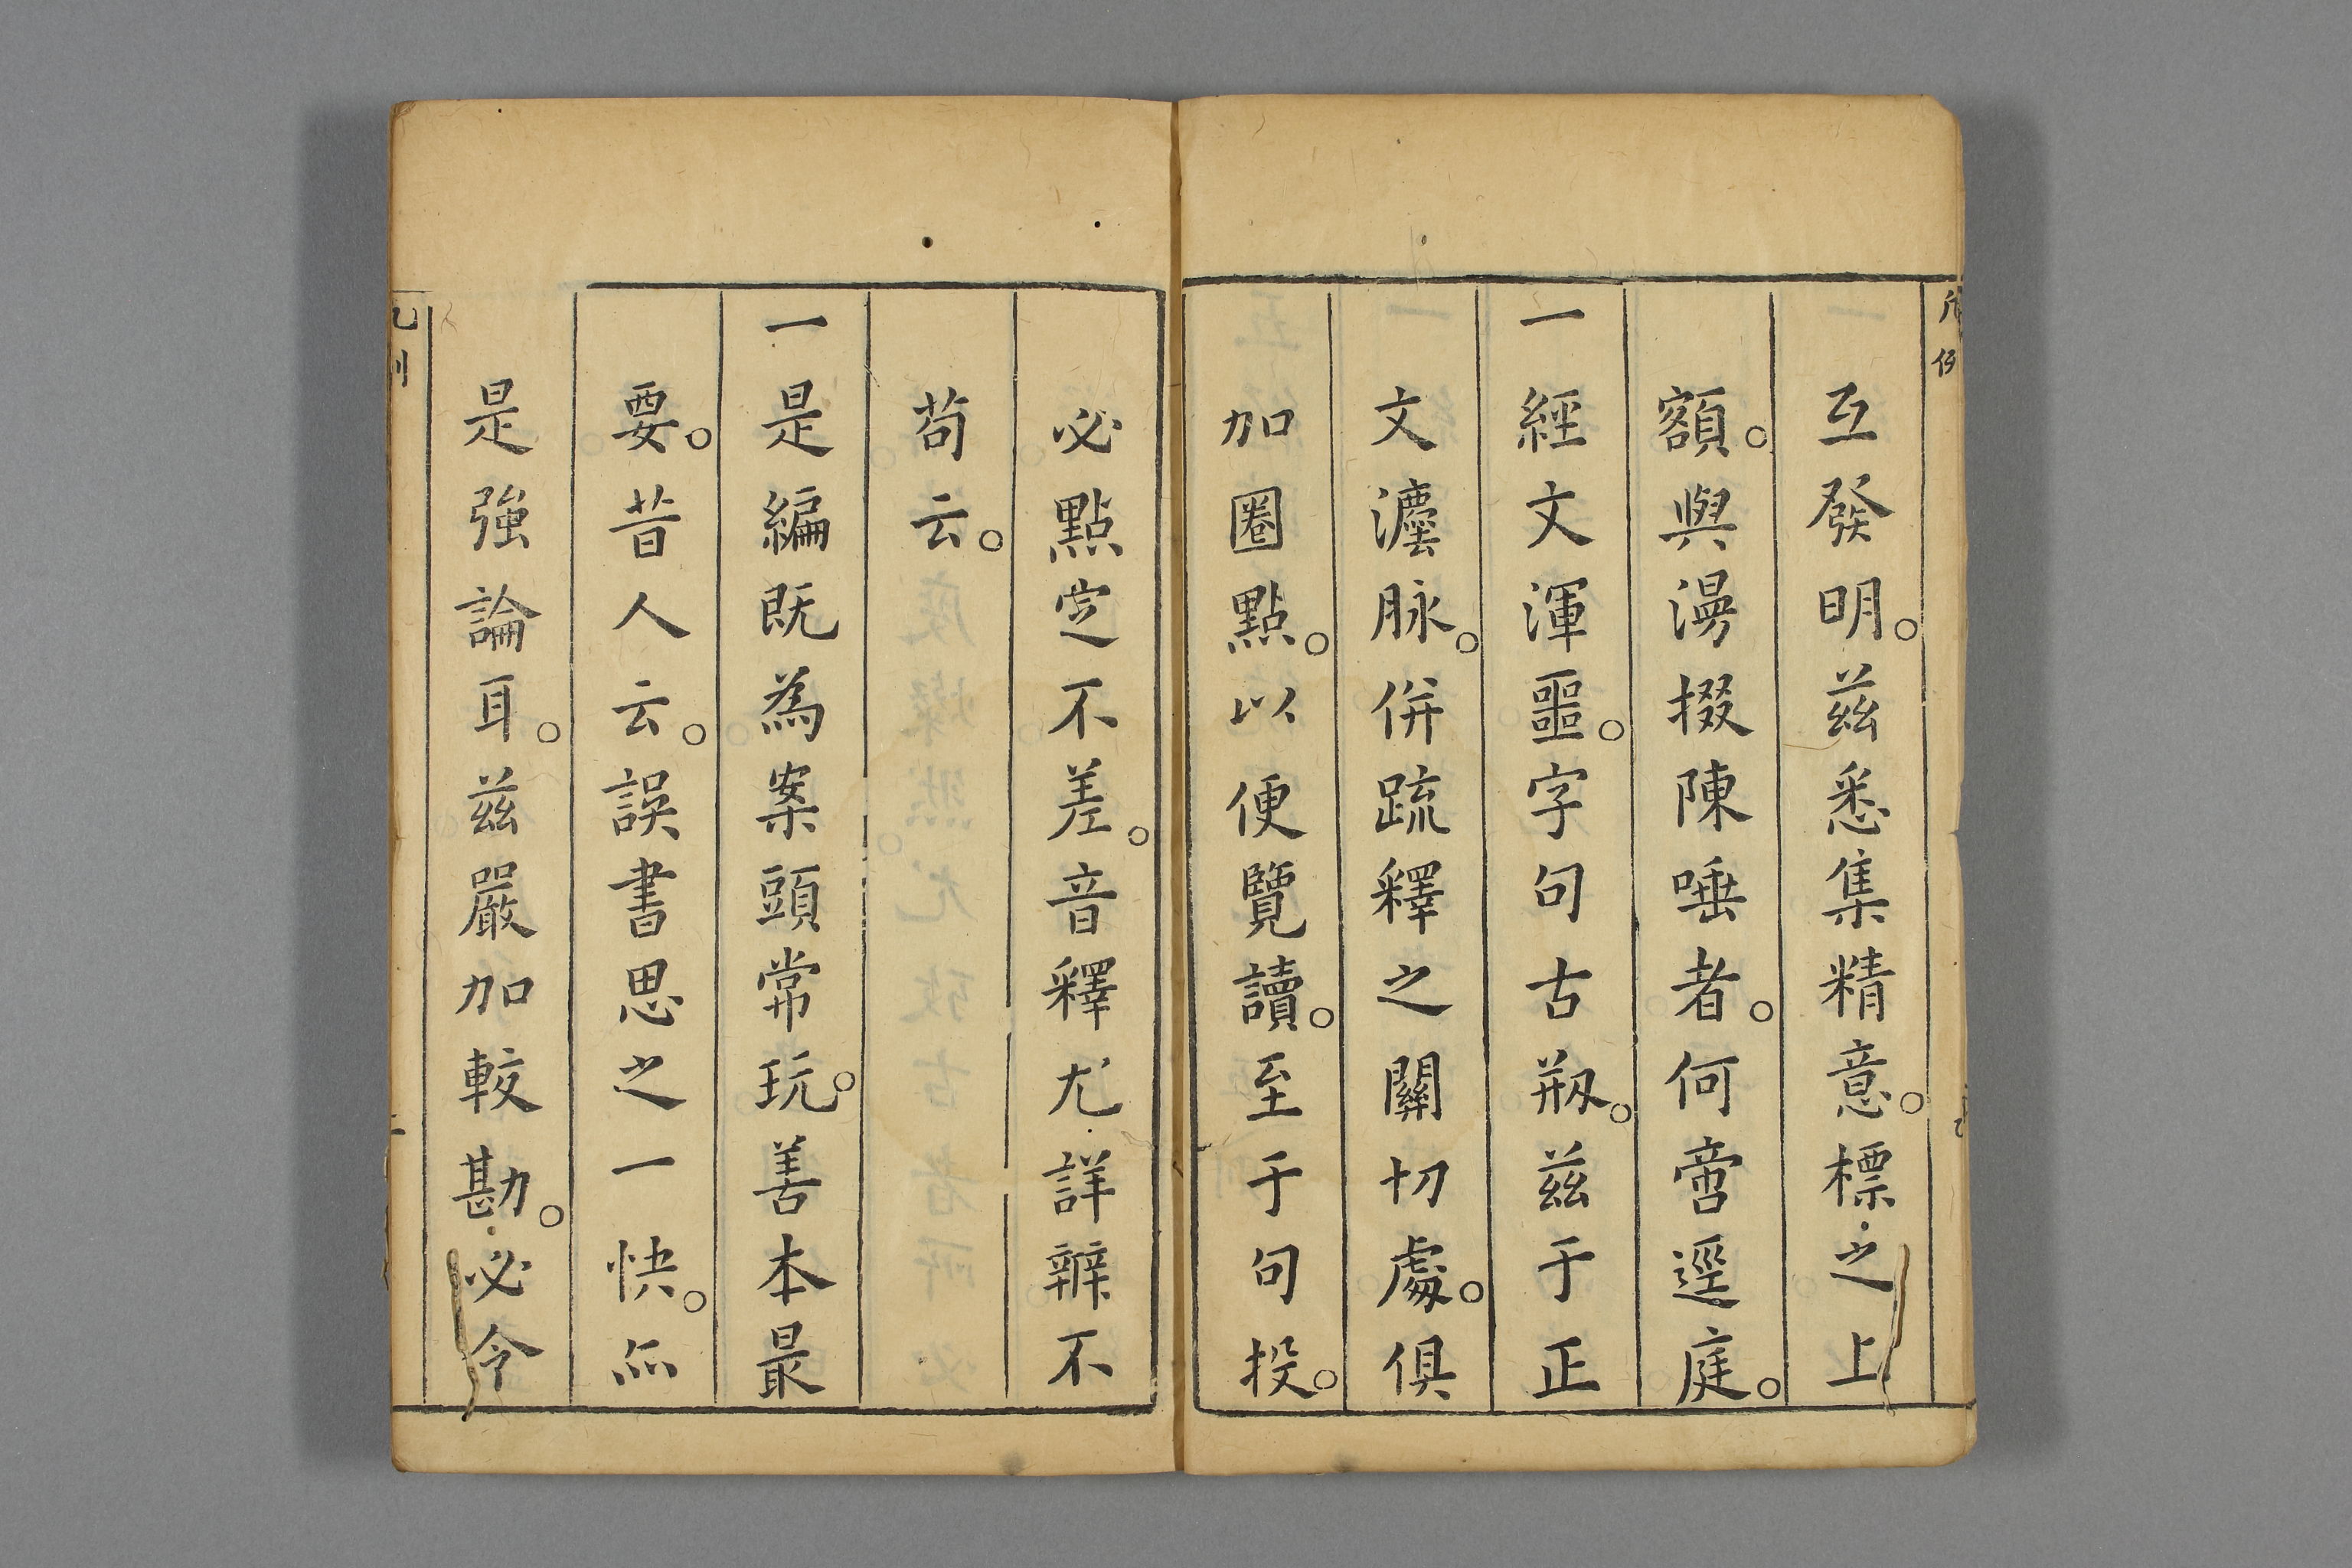 凡例
互發明。茲悉集精意。標之上
額。與漫掇陳唾者。何啻逕庭。
一經文渾噩。字句古刱。茲于正
文瀍脉。併疏釋之關切處。俱
加圈點。以便覽讀。至于句投。
必點定不差。音釋尤詳辨不
苟云。
一是編既為案頭常玩。善本最
要。昔人云。誤書思之一快。亦
是強論耳。茲嚴加較勘。必令